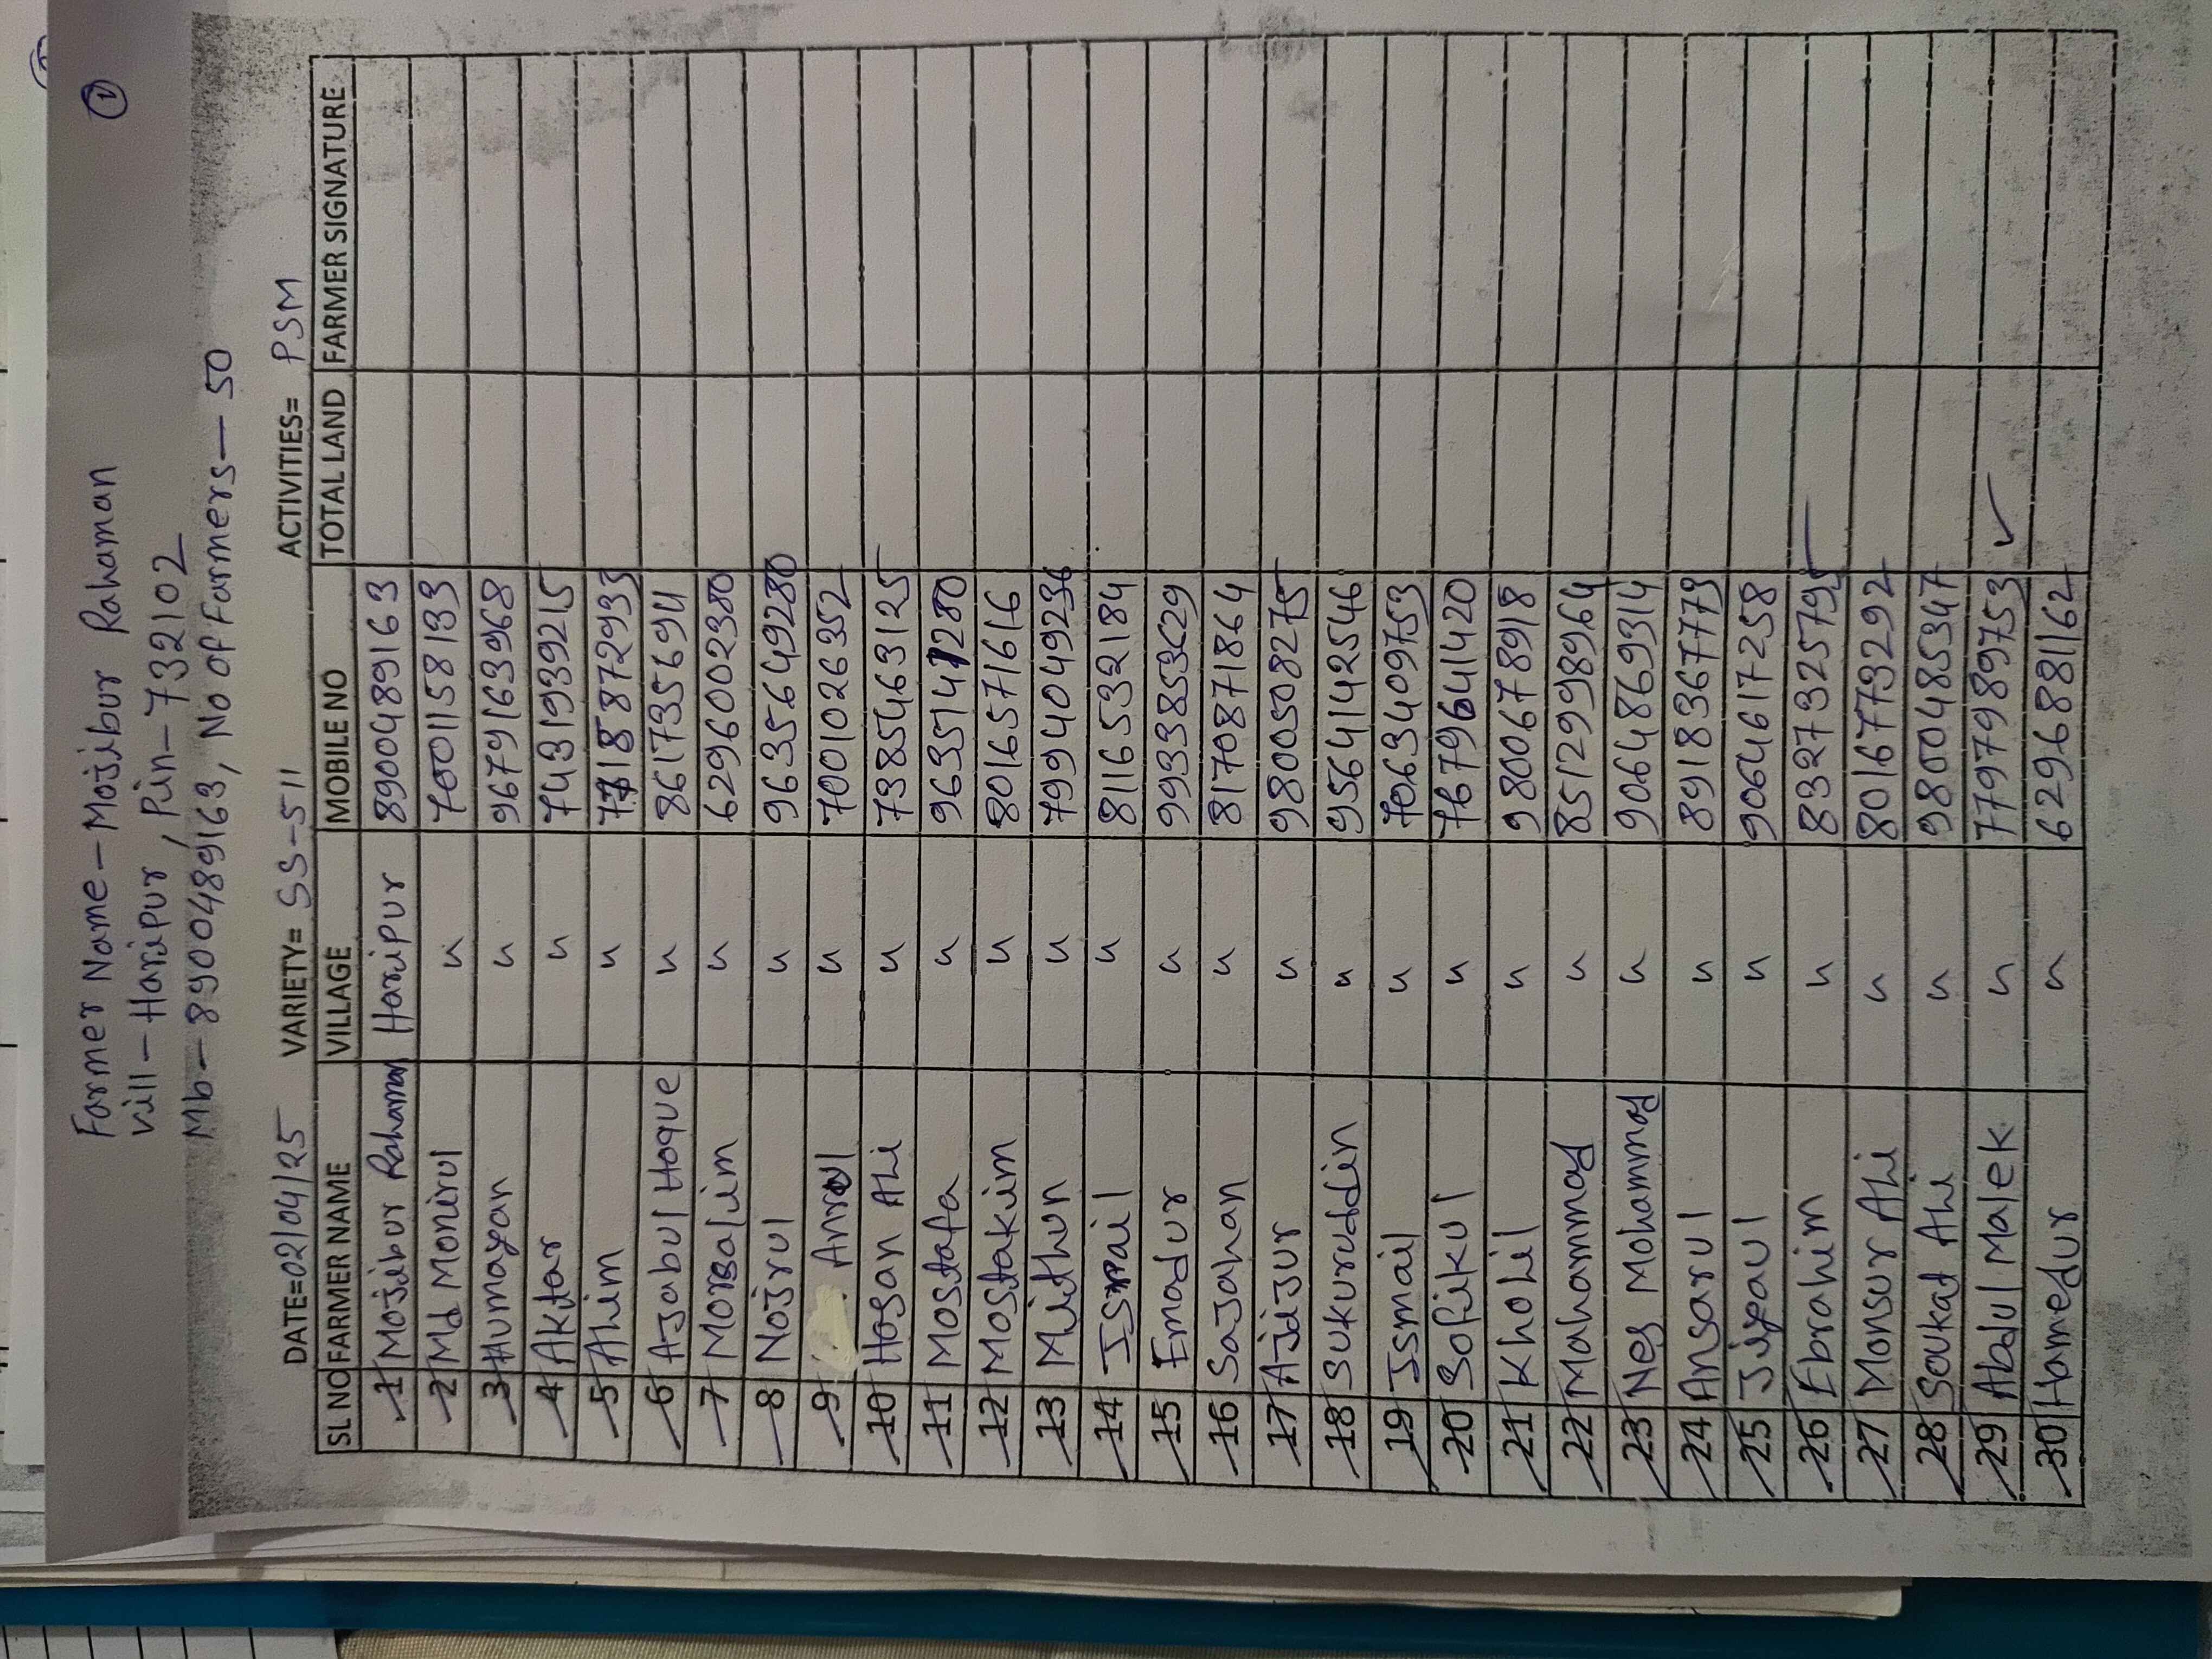 ②
Farmer Name - Mojibur Rahaman
Vill - Haripur, Pin - 732102
Mb - 8900489163, No of Farmers - 50
DATE=02/04/25 VARIETY= SS-511 ACTIVITIES= PSM
SL NO FARMER NAME VILLAGE MOBILE NO TOTAL LAND FARMER SIGNATURE
1 Mojibur Rahaman Haripur 8900489163
2 Md Monirul " 7001158133
3 Humayan " 9679163968
4 Aktar " 7431939215
5 Alim " 7718872933
6 Ajabul Hoque " 861735694
7 Morsalim " 6296002380
8 Nojrul " 9635649280
9 " 7001026352
10 Hosan Ali " 7385463125
11 Mostafa " 9635141280
12 Mostakim " 8016571616
13 Mithun " 7994049236
14 " 8116532184
15 Emadur " 9933853629
16 Sajahan " 8170871864
17 Ajijur " 9800508275
18 Sukuruddin " 9564142546
19 Ismail " 7063409753
20 Sofikul " 7679641420
21 Kholil " 9800678918
22 Mohammad " 8512998964
23 Nes Mohammad " 9064869314
24 Ansarul " 8918367779
25 Jiyaul " 9064617258
26 Ebrahim " 8327325795
27 Monsur Ali " 8016773292
28 Soukat Ali " 9800485347
29 Abdul Malek " 7797989753 ✓
30 Hamedur " 6296881162